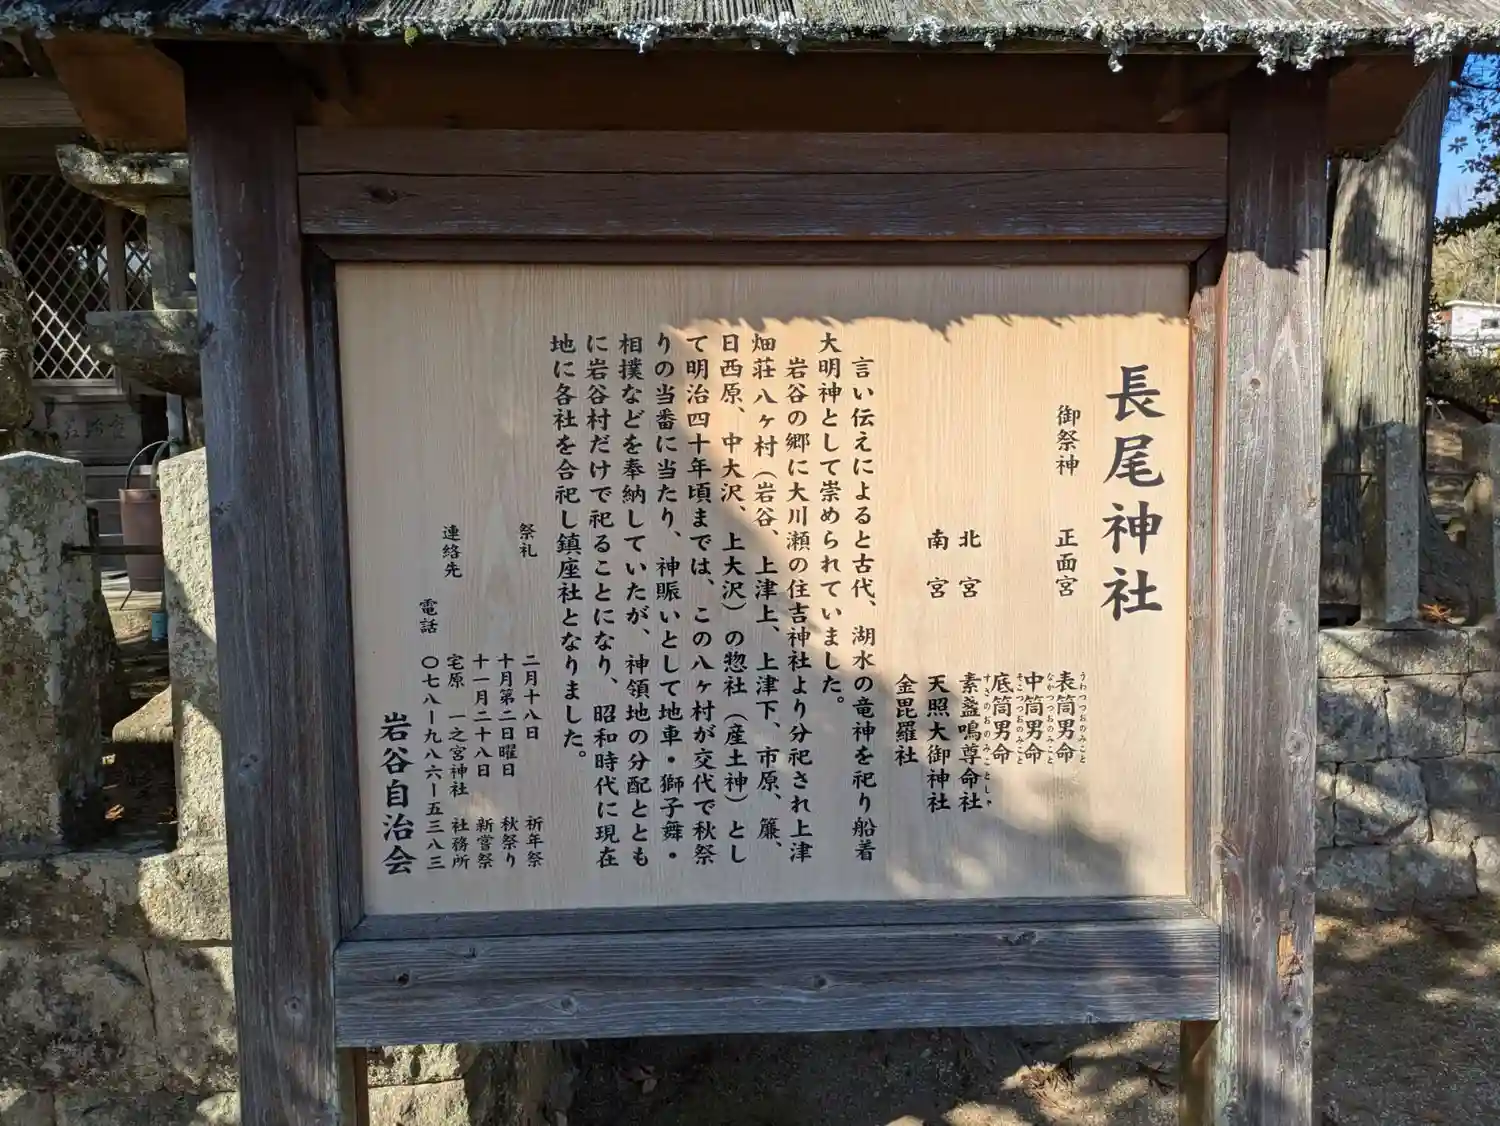 長尾神社
御祭神 正面宮 表筒男命
うわつつおのみこと
中筒男命
なかつつおのみこと
底筒男命
そこつつおのみこと
北宮 素盞嗚尊命社
すさのおのみことしゃ
南宮 天照大御神社
金毘羅社
言い伝えによると古代、湖水の竜神を祀り船着
大明神として崇められていました。
岩谷の郷に大川瀬の住吉神社より分祀され上津
畑荘八ヶ村（岩谷、上津上、上津下、市原、簾、
日西原、中大沢、上大沢）の惣社（産土神）とし
て明治四十年頃までは、この八ヶ村が交代で秋祭
りの当番に当たり、神賑いとして地車・獅子舞・
相撲などを奉納していたが、神領地の分配ととも
に岩谷村だけで祀ることになり、昭和時代に現在
地に各社を合祀し鎮座社となりました。
祭礼 二月十八日 祈年祭
十月第二日曜日 秋祭り
十一月二十八日 新嘗祭
連絡先 宅原 一之宮神社 社務所
電話 〇七八ー九八六ー五三八三
岩谷自治会